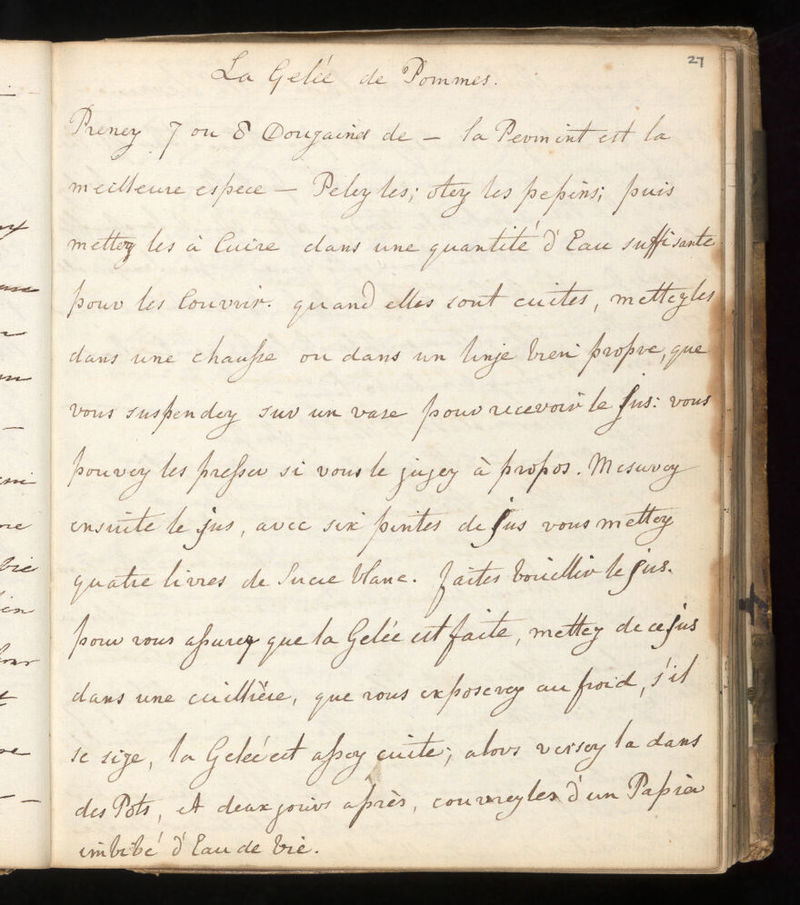 27
La Gelée de Pommes.
Prenez 7 ou 8 Douzaines de — la Pevmint est la
meilleure espece — Pelez les; otez les pepins; puis
mettez les à Cuire dans une quantité d'Eau suffisante
pour les Couvrir. quand elles sont cuites, mettez les
dans une chausse ou dans un linje bien propre, que
vous suspendez sur un vase pour recevoir le Jus: vous
pouvez les presser si vous le jugez à propos. Mesurez
ensuite le jus, avec six pintes de Jus vous mettez
quatre livres de Sucre blanc. faites bouillir le Jus.
pour vous assurez que la Gelée est faite, mettez de ce Jus
dans une cuillière, que vous exposerez au froid, s'il
se sige, la Gelée est assez cuite; alors versez la dans
des Pots, et deux jours après, couvrez les d'un Papier
imbibé d'Eau de Vie.